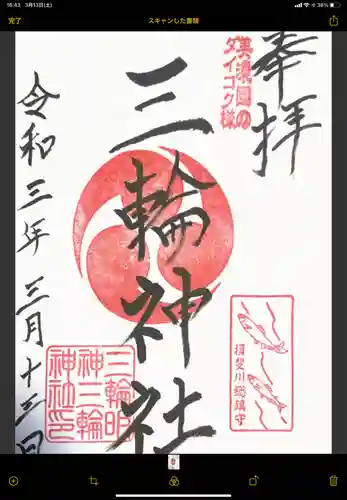 16:43 3月13日(土)
38%
完了
スキャンした書類
奉拝
美濃国の
ダイコク様
三輪神社
揖斐川総鎮守
令和三年三月十三日
三輪明
神三輪
神社印